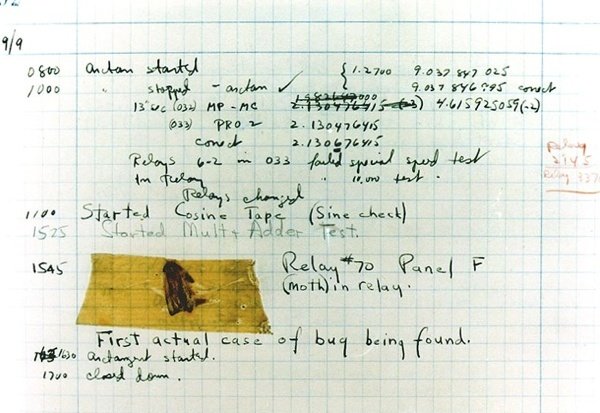 9/9
0800 antan started
1000 " stopped - antan ✓ { 1.2700 9.037 847 025
9.037 846 995 correct
13"uc (032) MP-MC 2.130476415 (-3) 4.615925059(-2)
(033) PRO 2 2.130476415
correct 2.130676415
Relays 6-2 in 033 failed special speed test
in Relay " 10,000 test.
Relays changed
1100 Started Cosine Tape (Sine check)
1525 Started Mult+ Adder Test.
1545 Relay #70 Panel F
(moth) in relay.
First actual case of bug being found.
1630 antangent started.
1700 closed down.
Relay
2145
Relay 337